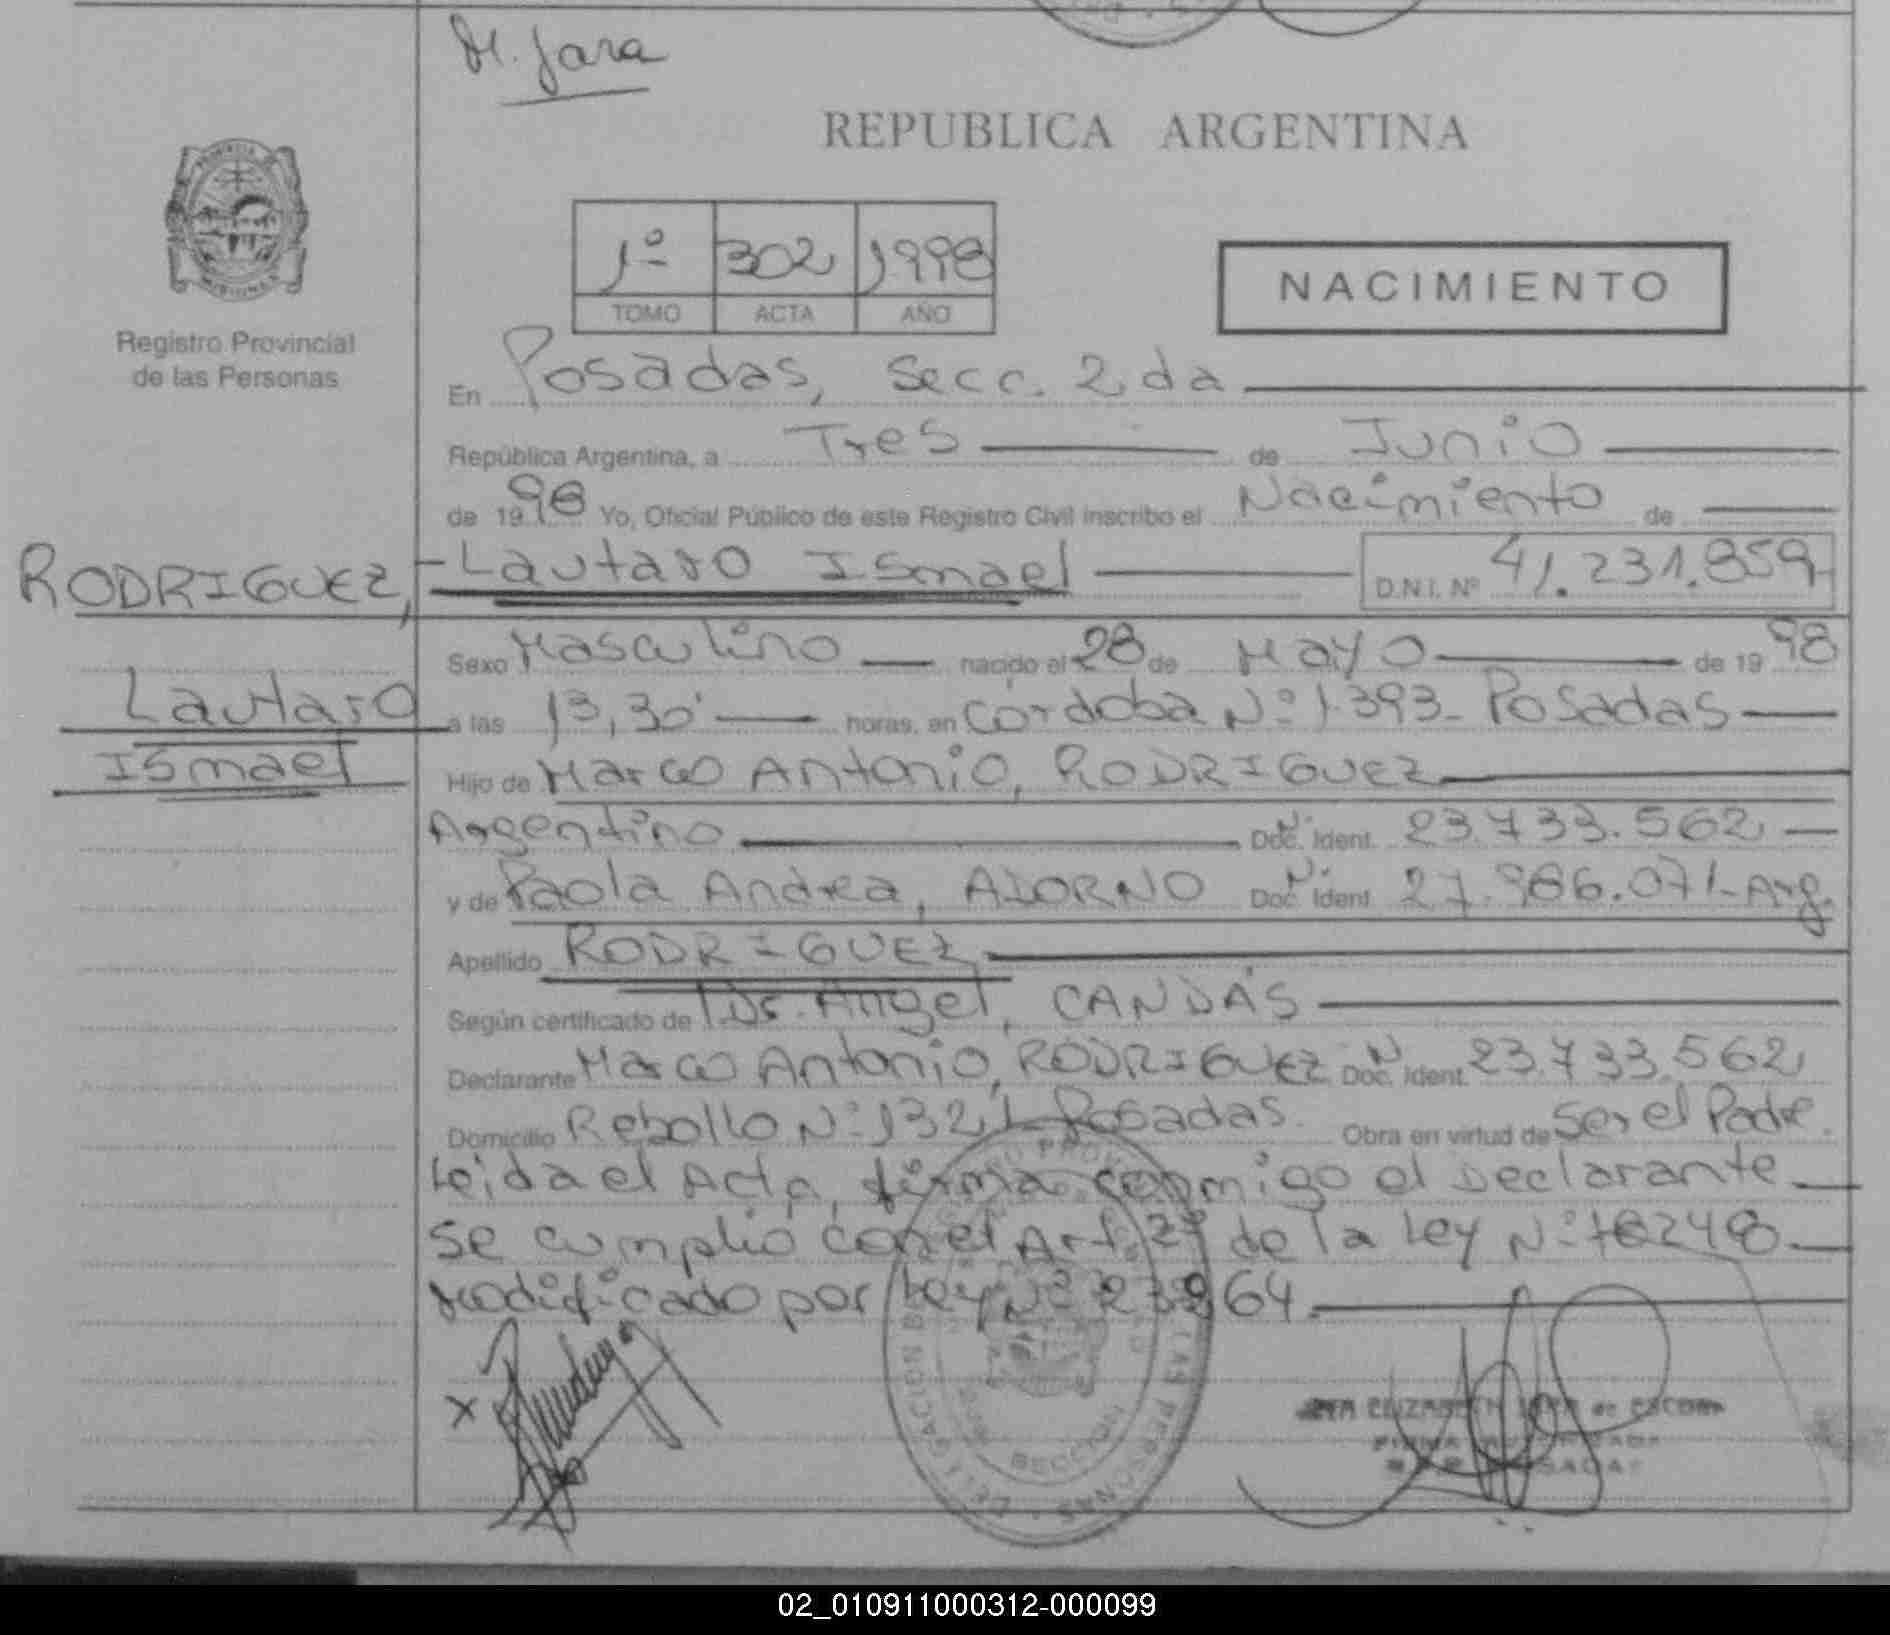 M. Jara
REPUBLICA ARGENTINA
1º 302 1998
TOMO ACTA AÑO
NACIMIENTO
Registro Provincial
de las Personas
En Posadas, Secc. 2da
República Argentina, a Tres de Junio
de 1998 Yo, Oficial Público de este Registro Civil inscribo el Nacimiento de
RODRIGUEZ, Lautaro Ismael D.N.I. Nº 41.231.859
Lautaro
Ismael
Sexo Masculino nacido el 28 de Mayo de 1998
a las 13,30' horas, en Córdoba Nº 1393- Posadas
Hijo de Marco Antonio, RODRIGUEZ
Argentino Doc. Ident. 23.733.562
y de Paola Andrea, AIORNO Doc. Ident. 27.986.071-Arg.
Apellido RODRIGUEZ
Según certificado de Dr. Angel, CANDÁS
Declarante Marco Antonio, RODRIGUEZ Doc. Ident. 23.733.562
Domicilio Rebollo Nº 1321 Posadas. Obra en virtud de Ser el Padre.
Leida el Acta, firma conmigo el Declarante
se cumplió con el Art. 2º de la Ley Nº 18248
modificado por Ley Nº 23264.
X
SECCION
DELEGACION
PERSONAS
ELIZABETH de
FIRMA AUTORIZADA
POSADAS
02_010911000312-000099